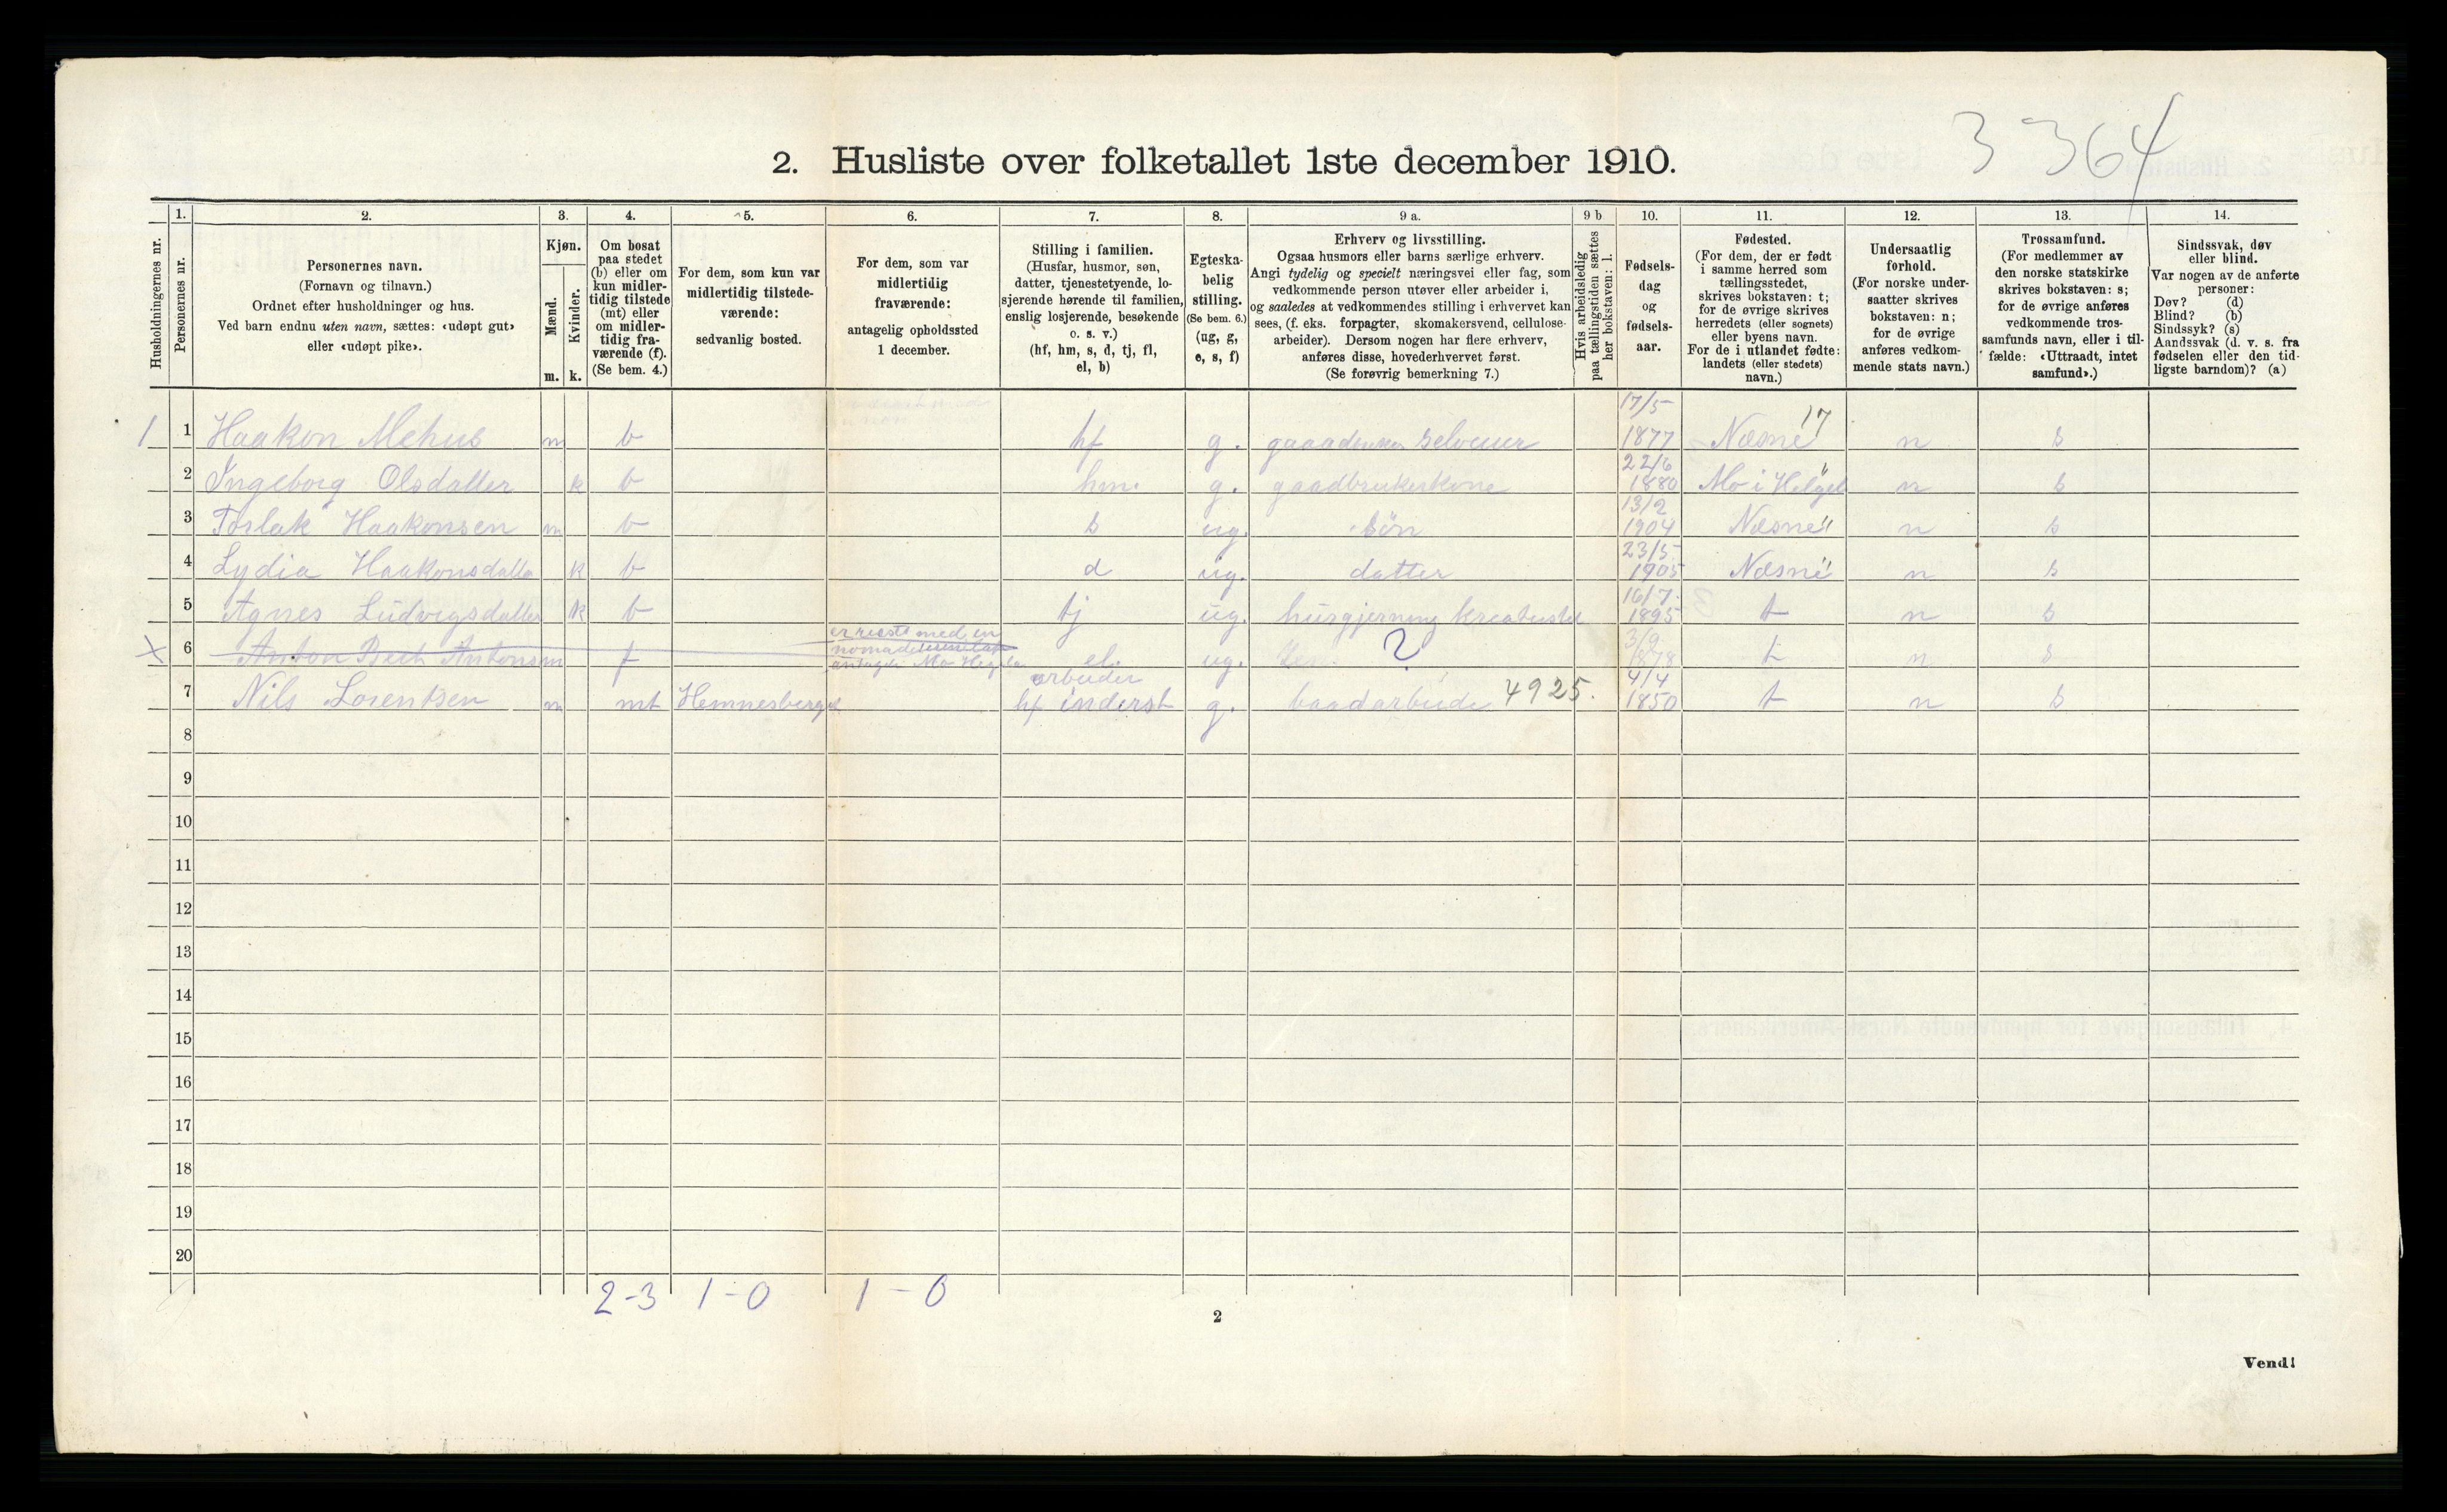 3 364
2. Husliste over folketallet 1ste december 1910.
Husholdningernes nr.
1. Personernes nr.
2. Personernes navn.
(Fornavn og tilnavn.)
Ordnet efter husholdninger og hus.
Ved barn endnu uten navn, sættes: «udøpt gut»
eller «udøpt pike».
3. Kjøn.
Mænd. Kvinder.
m. k.
4. Om bosat
paa stedet
(b) eller om
kun midler-
tidig tilstede
(mt) eller
om midler-
tidig fra-
værende (f).
(Se bem. 4.)
5. For dem, som kun var
midlertidig tilstede-
værende:
sedvanlig bosted.
6. For dem, som var
midlertidig
fraværende:
antagelig opholdssted
1 december.
7. Stilling i familien.
(Husfar, husmor, søn,
datter, tjenestetyende, lo-
sjerende hørende til familien,
enslig losjerende, besøkende
o. s. v.)
(hf, hm, s, d, tj, fl,
el, b)
8. Egteska-
belig
stilling.
(Se bem. 6.)
(ug, g,
e, s, f)
9 a. Erhverv og livsstilling.
Ogsaa husmors eller barns særlige erhverv.
Angi tydelig og specielt næringsvei eller fag, som
vedkommende person utøver eller arbeider i,
og saaledes at vedkommendes stilling i erhvervet kan
sees, (f. eks. forpagter, skomakersvend, cellulose-
arbeider). Dersom nogen har flere erhverv,
anføres disse, hovederhvervet først.
(Se forøvrig bemerkning 7.)
9 b Hvis arbeidsledig
paa tællingstiden sættes
her bokstaven: l.
10. Fødsels-
dag
og
fødsels-
aar.
11. Fødested.
(For dem, der er født
i samme herred som
tællingsstedet,
skrives bokstaven: t;
for de øvrige skrives
herredets (eller sognets)
eller byens navn.
For de i utlandet fødte:
landets (eller stedets)
navn.)
12. Undersaatlig
forhold.
(For norske under-
saatter skrives
bokstaven: n;
for de øvrige
anføres vedkom-
mende stats navn.)
13. Trossamfund.
(For medlemmer av
den norske statskirke
skrives bokstaven: s;
for de øvrige anføres
vedkommende tros-
samfunds navn, eller i til-
fælde: «Uttraadt, intet
samfund».)
14. Sindssvak, døv
eller blind.
Var nogen av de anførte
personer:
Døv? (d)
Blind? (b)
Sindssyk? (s)
Aandssvak (d. v. s. fra
fødselen eller den tid-
ligste barndom)? (a)
1 1 Haakon Mehus m b hf g. selveuer 17/5 1877 Næsne 17 n s
2 Ingeborg Olsdatter k b hm. g. gaadbrukerkone 22/6 1880 Mo i Helgel " n s
3 Torlak Haakonsen m b s ug. søn 13/2 1904 Næsne " n s
4 Lydia Haakonsdatte k b d ug. datter 23/5 1905 Næsne " n s
5 Agnes Ludvigsdatter k b tj ug. husgjerning kreaturstel 16/7 1895 t n s
X 6 Anton Antons m f er reist med en
nomade
antagel. Mo el. ug. ? 3/9 1878 t n s
arbeider
7 Nils Lorentsen m mt Hemnesberget hf inderst g. baadarbeide 4925. 4/4 1850 t n s
8
9
10
11
12
13
14
15
16
17
18
19
20
2-3 1-0 1-0
2
Vend!